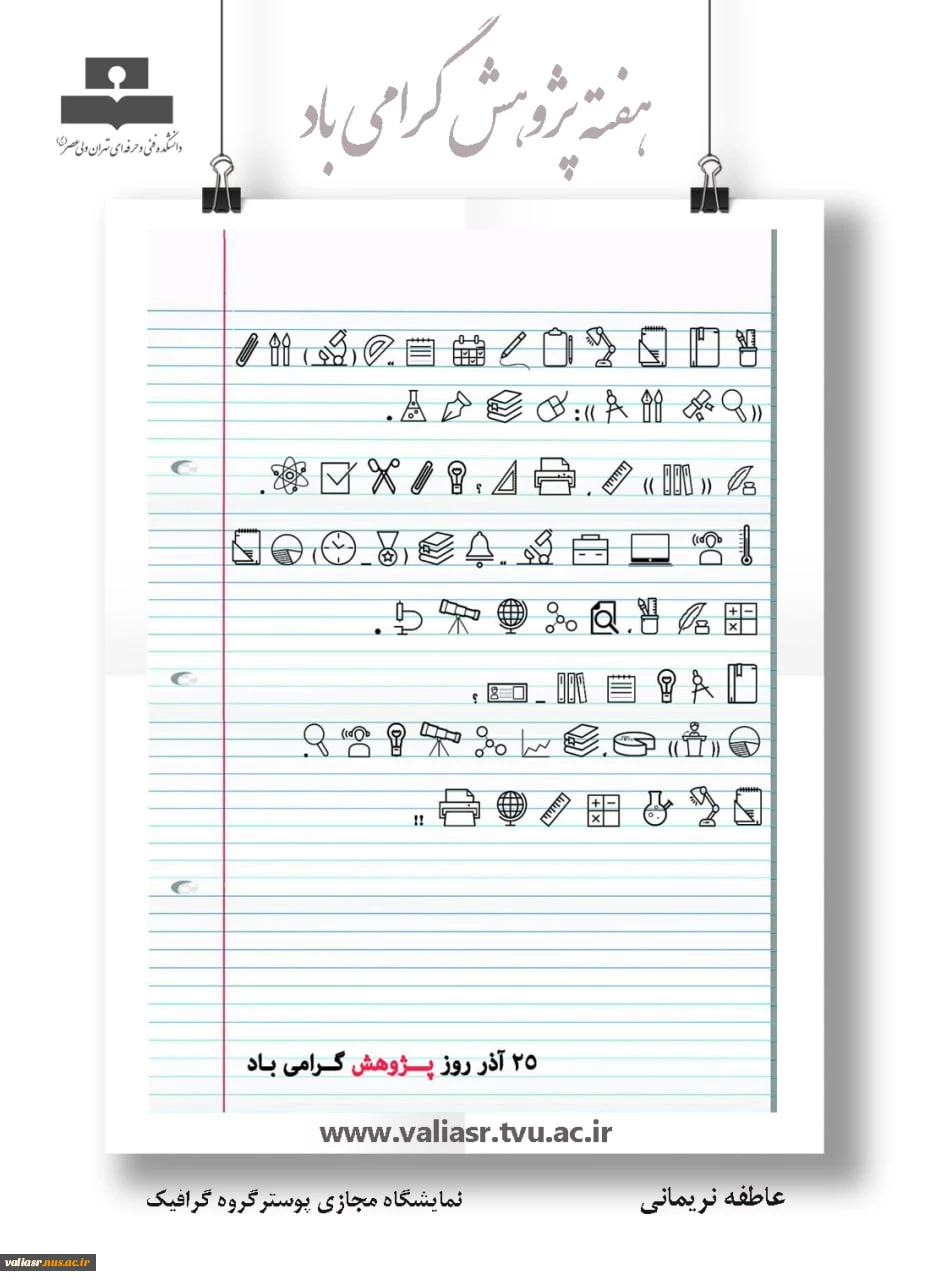 هفته پژوهش گرامی باد
دانشکده فنی و حرفه‌ای تهران ولی عصر (عج)
۲۵ آذر روز پـــژوهش گـــرامی بـاد
www.valiasr.tvu.ac.ir
عاطفه نریمانی
نمایشگاه مجازی پوستر گروه گرافیک
valiasr.nus.ac.ir